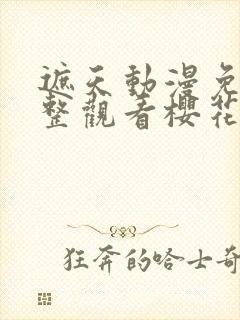 遮天動漫免
整觀看櫻花
狂奔的哈士奇